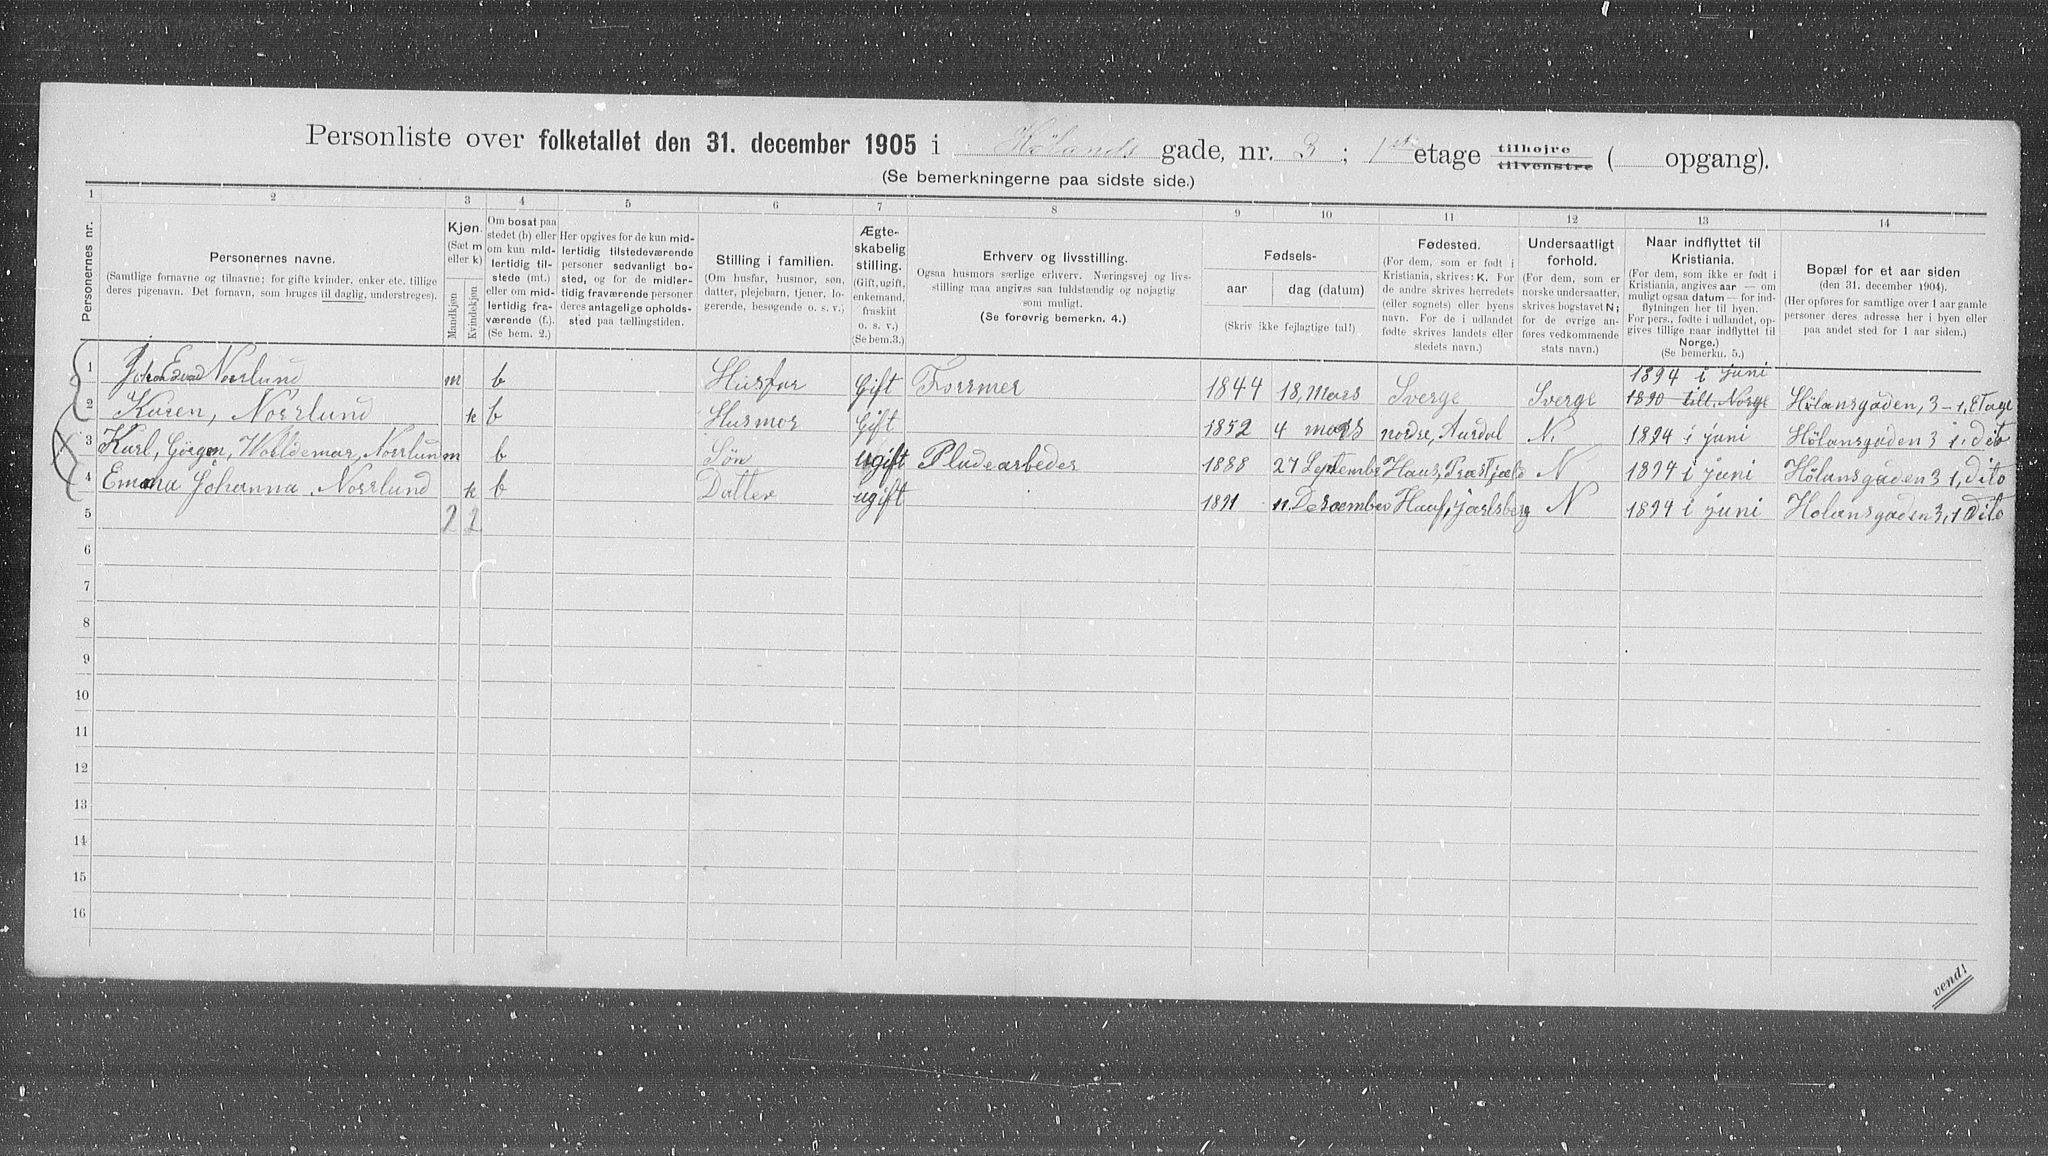 Personliste over folketallet den 31. december 1905 i Hölands gade, nr. 3; 1ste etage tilhøjre tilvenstre ( opgang).
(Se bemerkningerne paa sidste side.)
1 2 3 4 5 6 7 8 9 10 11 12 13 14
Personernes nr.
Personernes navne.
(Samtlige fornavne og tilnavne; for gifte kvinder, enker etc. tillige deres pigenavn. Det fornavn, som bruges til daglig, understreges).
Kjøn.
(Sæt m eller k)
Mandkjøn
Kvindekjøn
Om bosat paa stedet (b) eller om kun midlertidig tilstede (mt.) eller om midlertidig fraværende (f.). (Se bem. 2.)
Her opgives for de kun midlertidig tilstedeværende personer sedvanligt bosted, og for de midlertidig fraværende personer deres antagelige opholdssted paa tællingstiden.
Stilling i familien.
(Om husfar, husmor, søn, datter, plejebarn, tjener, logerende, besøgende o. s. v.)
Ægteskabelig stilling.
(Gift, ugift, enkemand, fraskilt o. s. v.)
(Se bem.3.)
Erhverv og livsstilling.
Ogsaa husmors særlige erhverv. Næringsvej og livsstilling maa angives saa fuldstændig og nøjagtig som muligt.
(Se forøvrig bemerkn. 4.)
Fødsels-
aar
dag (datum)
(Skriv ikke fejlagtige tal!)
Fødested.
(For dem, som er født i Kristiania, skrives: K. For de andre skrives herredets (eller sognets) eller byens navn. For de i udlandet fødte skrives landets eller stedets navn.)
Undersaatligt forhold.
(For dem, som er norske undersaatter, skrives bogstavet N; for de øvrige anføres vedkommende stats navn.)
Naar indflyttet til Kristiania.
(For dem, som ikke er født i Kristiania, angives aar — om muligt ogsaa datum — for indflytningen her til byen. For pers., fødte i udlandet, opgives tillige naar indflyttet til Norge.)
(Se bemerkn. 5.)
Bopæl for et aar siden
(den 31. december 1904).
(Her opføres for samtlige over 1 aar gamle personer deres adresse her i byen eller paa andet sted for 1 aar siden.)
1894 i juni
1 Johan Edvad Norrlund m b Husfar Gift Forrmer 1844 18, Mars Sverge Sverge 1890 till. Norge Hölansgaden, 3 – 1, Etage
2 Karen, Norrlund k b Husmor Gift 1852 4 mars nordre, Aurdal N. 1894 i juni Hölansgaden 3 1. dito
3 Karl, Görgen, Woldemar, Norrlun m b Sön ugift Pladearbeder 1888 27 Septembr N 1894 i juni Hölansgaden 3 1, dito
4 Emma Johanna Norrlund k b Datter ugift 1891 11. Desoember Jarlsberg N 1894 i juni Holansgaden 3, 1 Dito
5 2 2
6
7
8
9
10
11
12
13
14
15
16
vend!